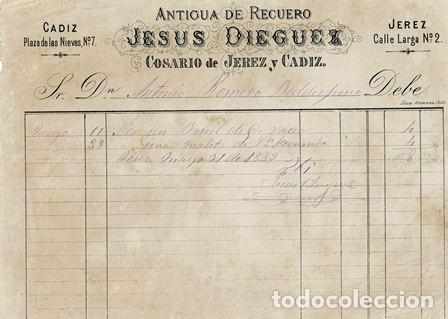 ANTIGUA DE RECUERO
CADIZ
Plaza de las Nieves, Nº 7.
JESUS DIEGUEZ
JEREZ
Calle Larga Nº 2.
COSARIO de JEREZ y CADIZ.
Sr. Dn. Antonio Romero Valdespino Debe
Mayo 11 Por un Barril de Cz vacio 4
28 " una maleta de Sn. Fernando 4
Jerez Mayo 31 de 1882 8
Jesus Dieguez
todocoleccion.net